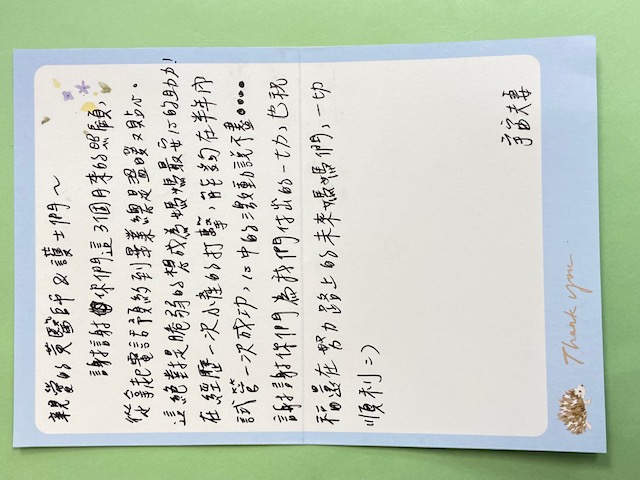 親愛的黃醫師 & 護士們～
謝謝你們這3個月來的照顧,
從拿起電話預約到畢業總是溫暖又貼心。
這絕對是脆弱的想成為媽媽最安心的助力!
在經歷一次小產的打擊, 能夠在半年內
試管一次成功, 心中的激動說不盡....
謝謝你們為我們付出的一切, 也祝
福還在努力路上的未來媽媽們, 一切
順利=)
宇宙夫妻
Thank you